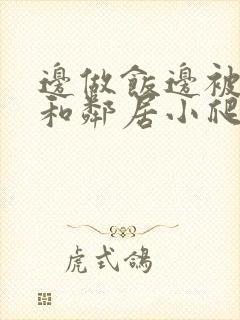 邊做飯邊被
和鄰居小爬
虎式鴿